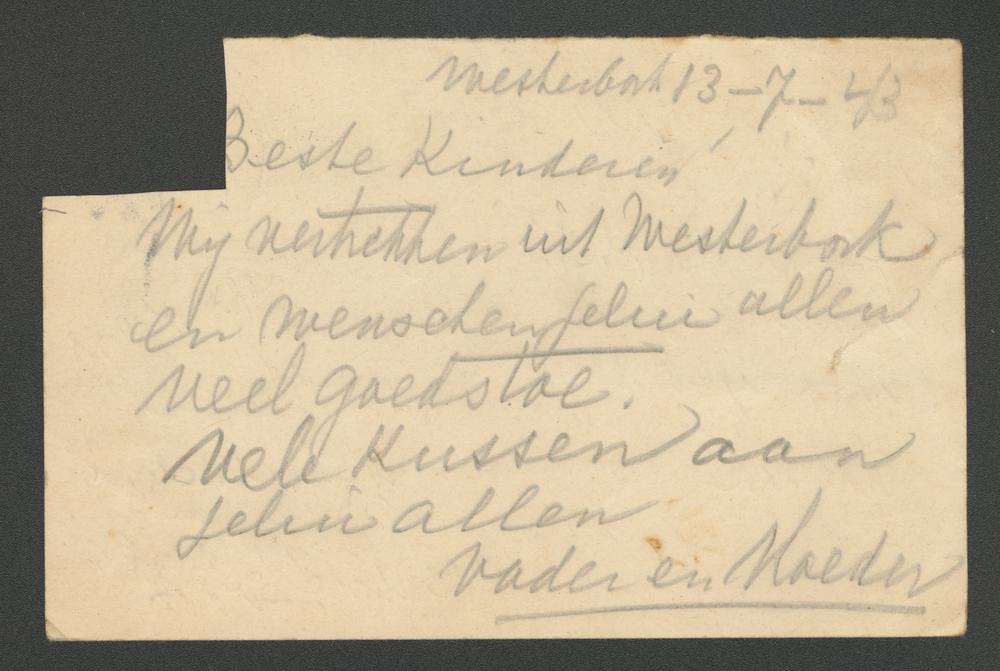 Westerbork 13-7-43
Beste Kinderen!
Wij vertrekken uit Westerbork
en wenschen jelui allen
veel goedstoe.
Vele Kussen aan
jelui allen
Vader en Moeder